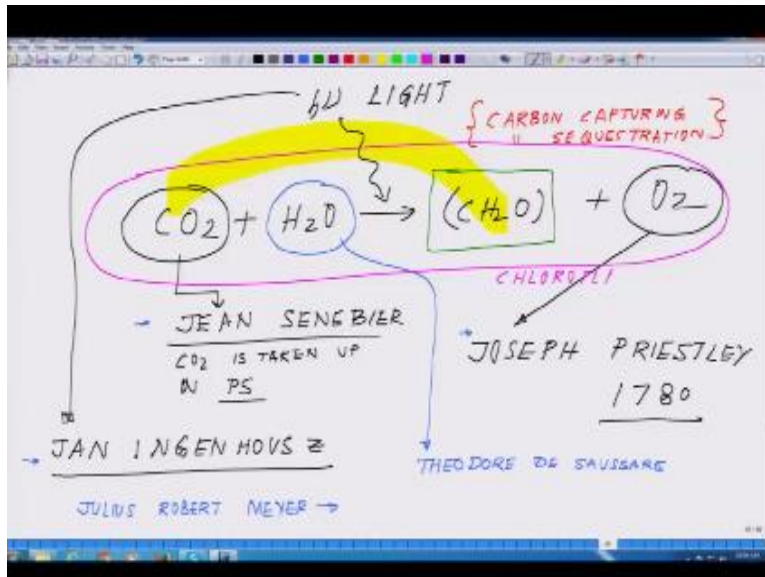 hν LIGHT
{CARBON CAPTURING
" SEQUESTRATION}
CO2 + H2O → (CH2O) + O2
CHLOROFLI
- JEAN SENEBIER
CO2 IS TAKEN UP
IN PS
→ JOSEPH PRIESTLEY
1780
→ JAN INGENHOUSZ
THEODORE DE SAUSSARE
JULIUS ROBERT MEYER →